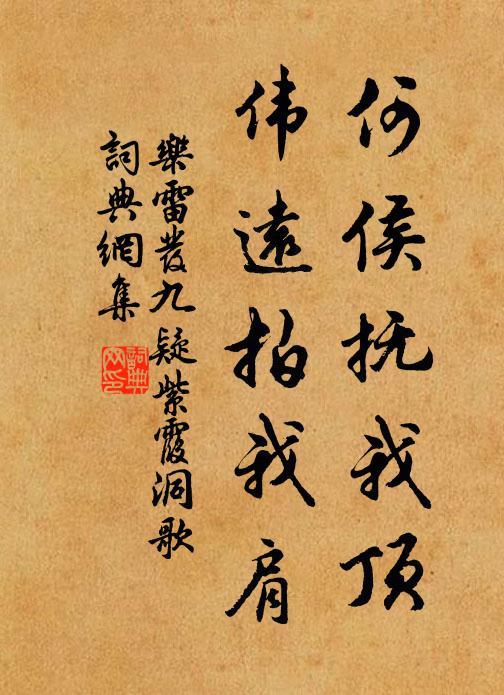 何侯抚我顶
伟遠拍我肩
樂雷發九疑紫霞洞歌
詞典網集
詞典网印